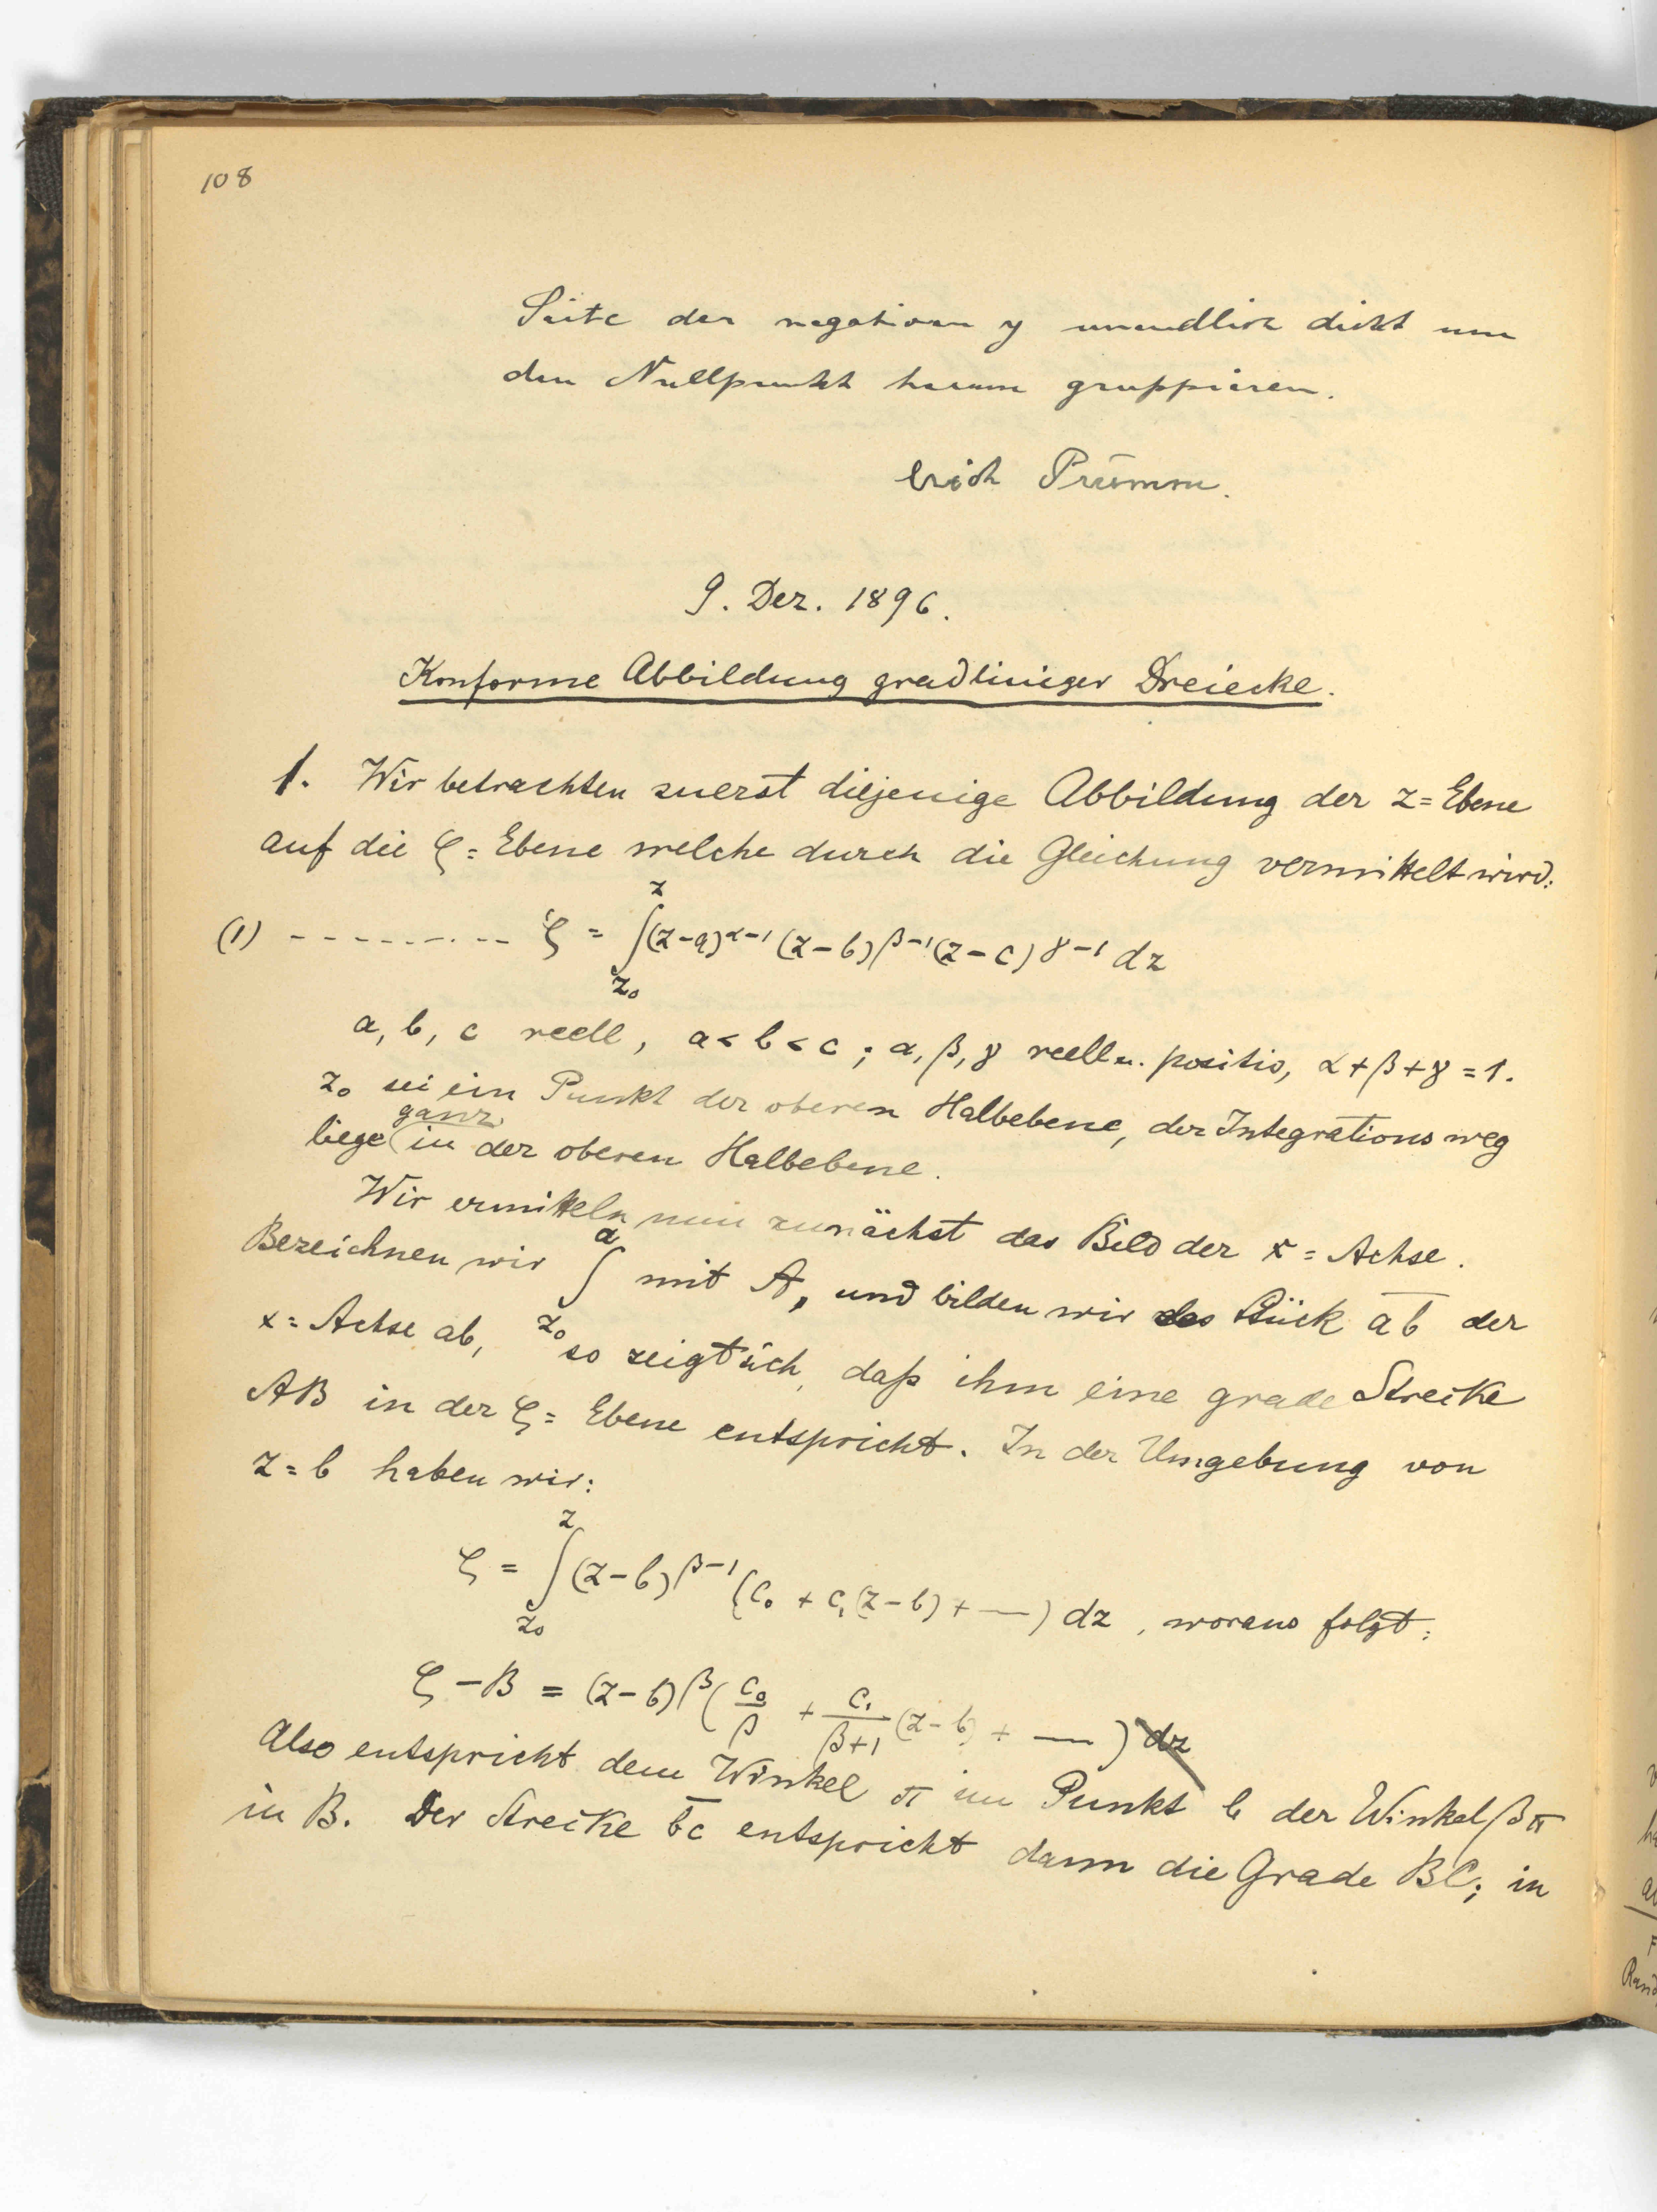 108
Seite der negativen y unendlich dicht um
den Nullpunkt herum gruppieren.
Erich Prümm.
9. Dez. 1896.
Konforme Abbildung gradliniger Dreiecke.
1. Wir betrachten zuerst diejenige Abbildung der z=Ebene
auf die ζ=Ebene welche durch die Gleichung vermittelt wird:
(1) ---------- ζ = ∫_{z₀}^{z} (z-a)^{α-1} (z-b)^{β-1} (z-c)^{γ-1} dz
a, b, c reell, a<b<c; α, β, γ reell u. positiv, α+β+γ=1.
z₀ sei ein Punkt der oberen Halbebene, der Integrationsweg
liege ganz in der oberen Halbebene.
Wir ermitteln nun zunächst das Bild der x=Achse.
Bezeichnen wir ∫_{z₀}^{a} mit A, und bilden wir das Stück a͞b der
x=Achse ab, so zeigt sich, daß ihm eine grade Strecke
AB in der ζ=Ebene entspricht. In der Umgebung von
z=b haben wir:
ζ = ∫_{z₀}^{z} (z-b)^{β-1} (c₀ + c₁(z-b) + —) dz, woraus folgt:
ζ - B = (z-b)^β (c₀/β + c₁/(β+1) (z-b) + —) dz
Also entspricht dem Winkel π im Punkt b der Winkel βπ
in B. Der Strecke b͞c entspricht dann die Grade BC; in